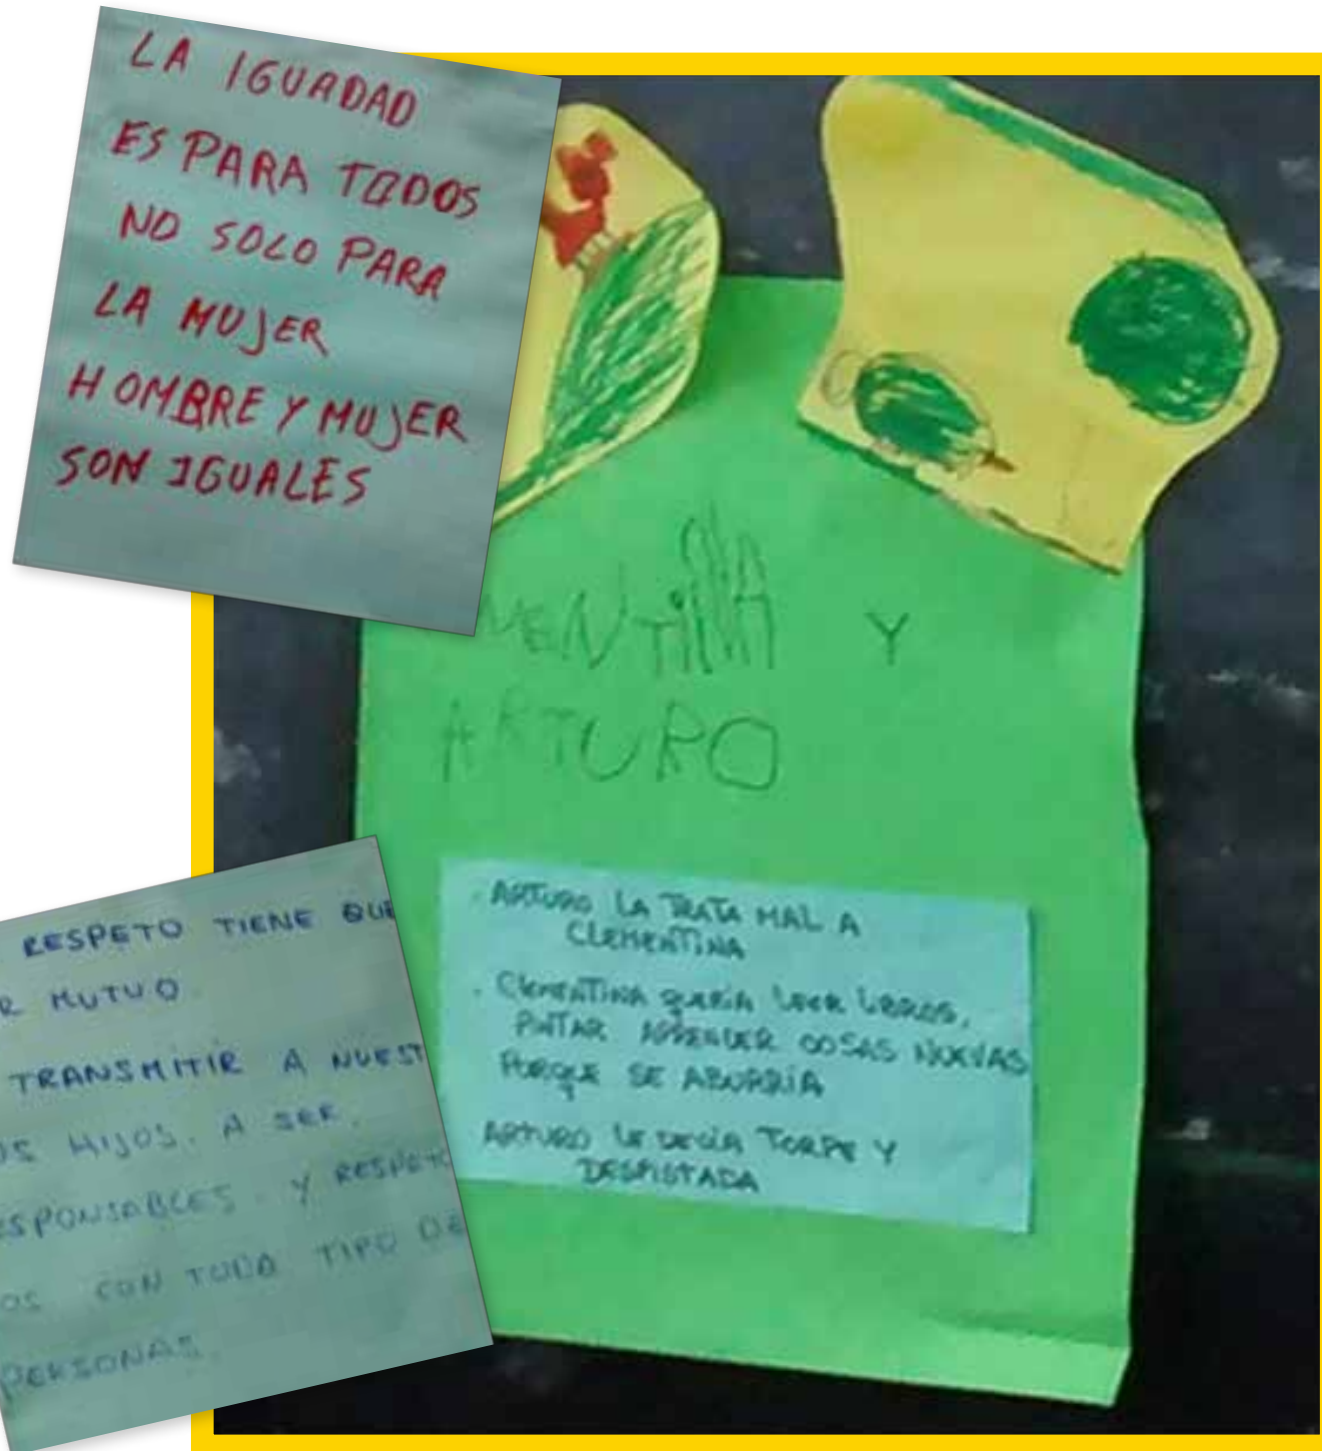 LA IGUADAD
ES PARA TODOS
NO SOLO PARA
LA MUJER
HOMBRE Y MUJER
SON IGUALES
Y
ARTURO
. ARTURO LA TRATA MAL A
CLEMENTINA
. CLEMENTINA QUERIA LEER LIBROS,
PINTAR APRENDER COSAS NUEVAS
PORQUE SE ABURRIA
ARTURO LE DECIA TORPE Y
DESPISTADA
RESPETO TIENE QUE
R MUTUO.
TRANSMITIR A NUEST
OS HIJOS, A SER.
ESPONSABLES Y RESPETO
OS CON TODO TIPO DE
PERSONAS.